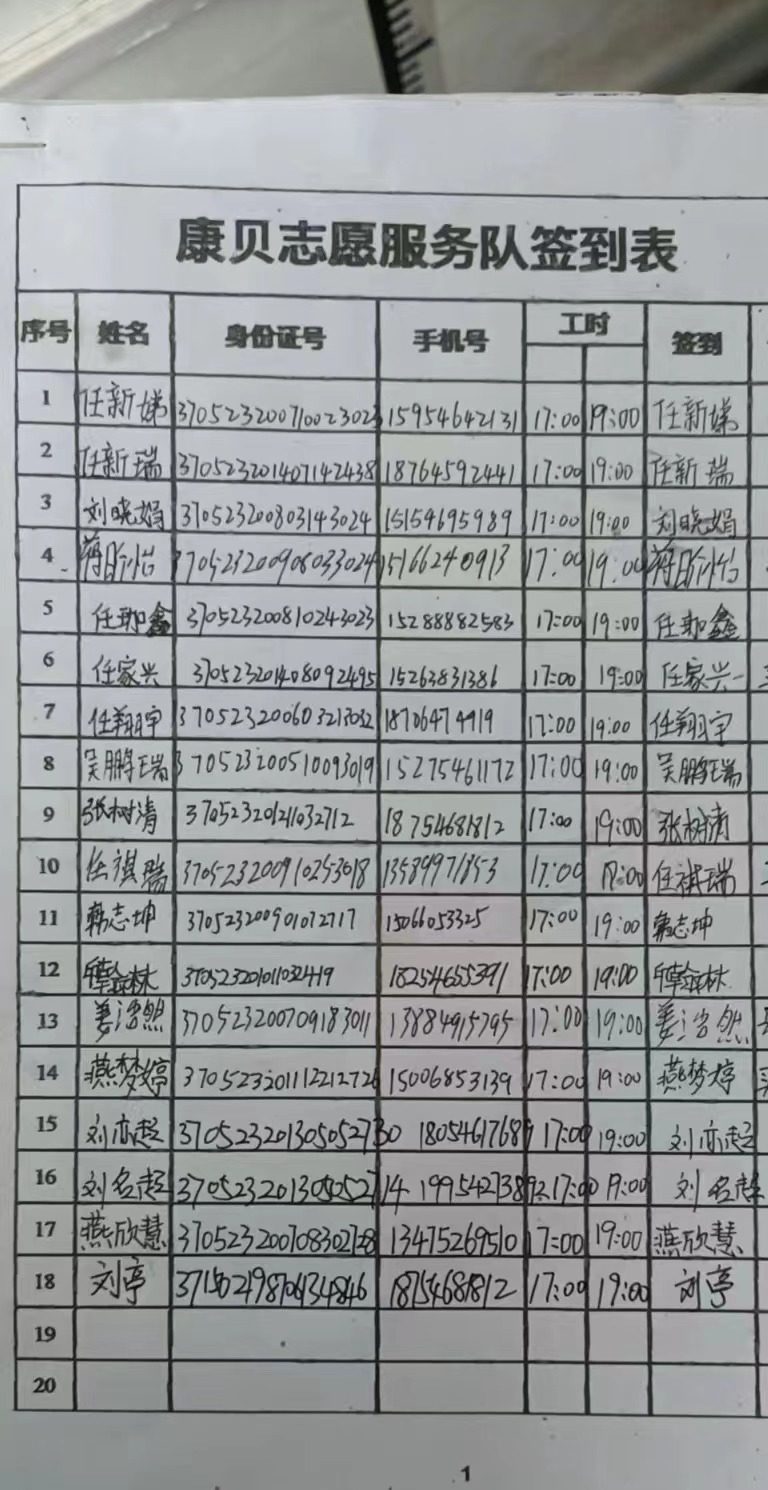 康贝志愿服务队签到表
序号 姓名 身份证号 手机号 工时 签到
1 任新娣 15954642131 17:00 19:00 任新娣
2 任新瑞 370523201407142438 18764592441 17:00 19:00 任新瑞
3 刘晓娟 370523200803143024 15154695989 17:00 19:00 刘晓娟
4 370523200908033024 15166240913 17:00 19:00
5 370523200810243023 15288882583 17:00 19:00
6 任家兴 370523201408092495 15263831386 17:00 19:00 任家兴
7 任翔宇 17:00 19:00 任翔宇
8 吴鹏瑞 370523200510093019 15275461172 17:00 19:00 吴鹏瑞
9 张树清 370523201211032712 18754681812 17:00 19:00 张树清
10 任祺瑞 370523200910253018 13589971853 17:00 任祺瑞
11 韩志坤 370523200901072717 15066053325 17:00 19:00 韩志坤
12 18254655391 17:00 19:00
13 姜浩然 370523200709183011 13884915795 17:00 19:00 姜浩然
14 燕梦婷 370523201112212726 15006853139 17:00 19:00 燕梦婷
15 刘亦超 370523201305052730 18054617689 17:00 19:00 刘亦超
16 刘名超 370523201305052714 17:00 19:00 刘名超
17 燕欣慧 370523200708302728 13475269510 17:00 19:00 燕欣慧
18 刘亭 18754681812 17:00 19:00 刘亭
19
20
1